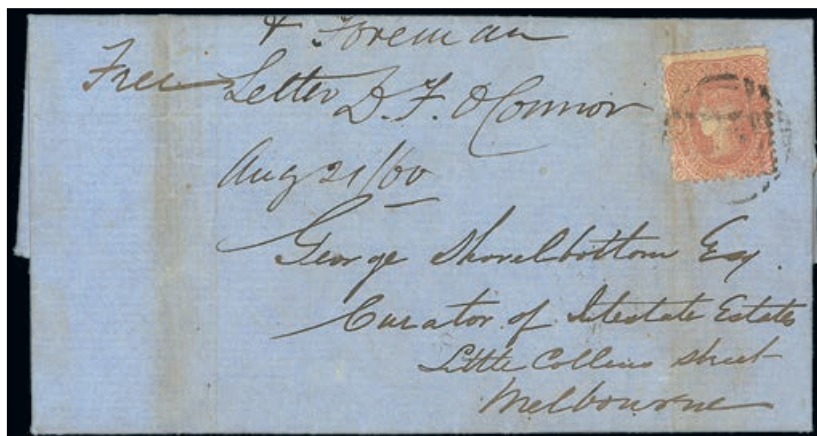 & Foreman
Free Letter D. F. O'Connor
Aug 21/60
George Shovelbottom Esq.
Curator of Intestate Estates
Little Collins street
Melbourne